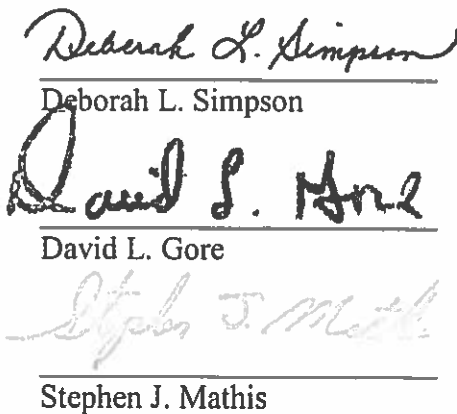 Deborah L. Simpson
Deborah L. Simpson
David L. Gore
David L. Gore
Stephen J. Math
Stephen J. Mathis